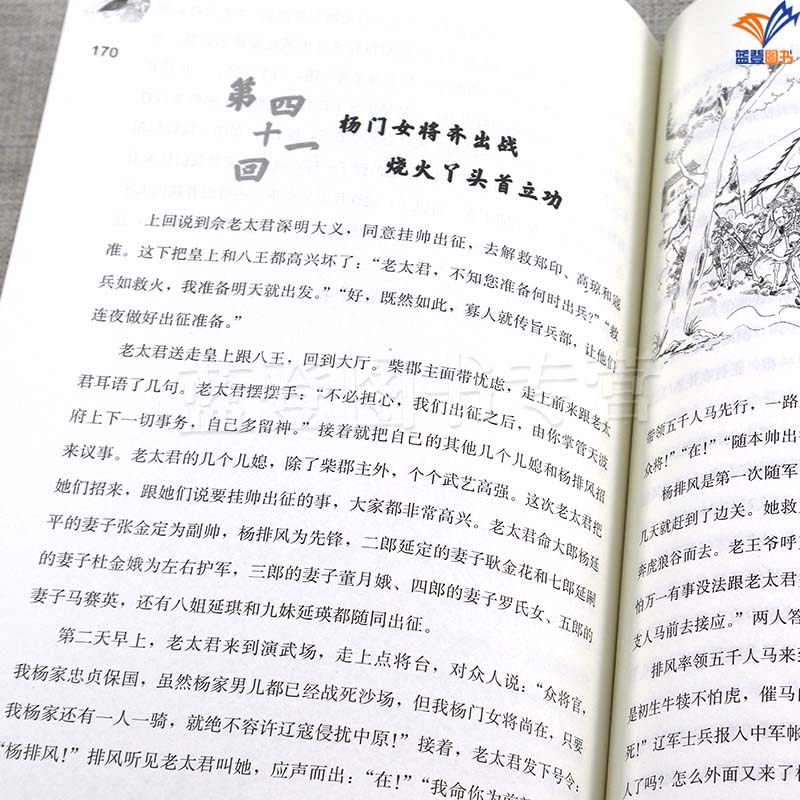 蓝登图书
170
第四十一回
杨门女将齐出战
烧火丫头首立功
上回说到佘老太君深明大义，同意挂帅出征，去解救郑印、高琼和寇
准。这下把皇上和八王都高兴坏了：“老太君，不知您准备何时出兵？”“救
兵如救火，我准备明天就出发。”“好，既然如此，寡人就传旨兵部，让他们
连夜做好出征准备。”
老太君送走皇上跟八王，回到大厅。柴郡主面带忧虑，走上前来跟老太
君耳语了几句。老太君摆摆手：“不必担心，我们出征之后，由你掌管天波
府上下一切事务，自己多留神。”接着就把自己的其他几个儿媳和杨排风招
来议事。老太君的几个儿媳，除了柴郡主外，个个武艺高强。这次老太君把
她们招来，跟她们说要挂帅出征的事，大家都非常高兴。老太君命大郎杨延
平的妻子张金定为副帅，杨排风为先锋，二郎延定的妻子耿金花和七郎延嗣
的妻子杜金娥为左右护军，三郎的妻子董月娥、四郎的妻子罗氏女、五郎的
妻子马赛英，还有八姐延琪和九妹延瑛都随同出征。
第二天早上，老太君来到演武场，走上点将台，对众人说：“众将官，
我杨家忠贞保国，虽然杨家男儿都已经战死沙场，但我杨门女将尚在，只要
我杨家还有一人一骑，就绝不容许辽寇侵扰中原！”接着，老太君发下号令：
“杨排风！”排风听见老太君叫她，应声而出：“在！”“我命你为前
带领五千人马先行，一路
众将！”“在！”“随本帅出
杨排风是第一次随军
几天就赶到了边关。她救
奔虎狼谷而去。老王爷呼
怕万一有事没法跟老太君
支人马前去接应。”两人答
排风率领五千人马来到
是初生牛犊不怕虎，催马
死！”辽军士兵报入中军帐
人了吗？怎么外面又来了
蓝登图书专营